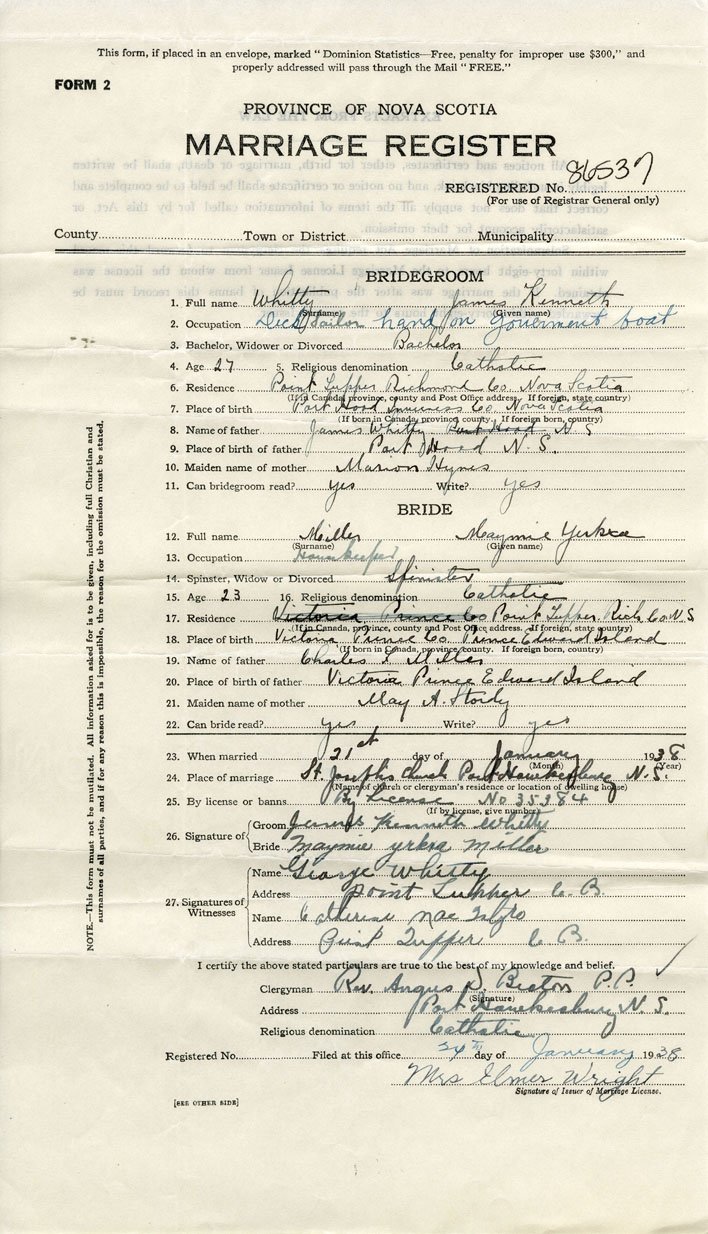 This form, if placed in an envelope, marked "Dominion Statistics—Free, penalty for improper use $300," and
properly addressed will pass through the Mail "FREE."
FORM 2
PROVINCE OF NOVA SCOTIA
MARRIAGE REGISTER
REGISTERED No. 86537
(For use of Registrar General only)
County Town or District Municipality
BRIDEGROOM
1. Full name Whitty James Kenneth
(Surname) (Given name)
2. Occupation Deck Sailor hand on Goverment boat
3. Bachelor, Widower or Divorced Bachelor
4. Age 27 5. Religious denomination Catholic
6. Residence Point Tupper Richmond Co. Nova Scotia
(If in Canada, province, county and Post Office address. If foreign, state country)
7. Place of birth Port Hood Inverness Co. Nova Scotia
(If born in Canada, province, county. If foreign born, country)
8. Name of father James Whitty Port Hood N. S
9. Place of birth of father Port Hood N. S.
10. Maiden name of mother Marion Hynes
11. Can bridegroom read? yes Write? yes
BRIDE
12. Full name Miller Maymie Yerkza
(Surname) (Given name)
13. Occupation Housekeeper
14. Spinster, Widow or Divorced Spinister
15. Age 23 16. Religious denomination Catholic
17. Residence Victoria Prince Co Point Tupper Rich. Co N S
(If in Canada, province, county and Post Office address. If foreign, state country)
18. Place of birth Victoria Prince Co. Prince Edward Island
(If born in Canada, province, county. If foreign born, country)
19. Name of father Charles F. Miller
20. Place of birth of father Victoria Prince Edward Island
21. Maiden name of mother May A. Stordy
22. Can bride read? yes Write? yes
23. When married 21st day of January 1938
(Month) (Year)
24. Place of marriage St. Joseph's Church Port Hawkesbury N. S.
(Name of church or clergyman's residence or location of dwelling house)
25. By license or banns By License No 35384
(If by license, give number)
26. Signature of
Groom James Kenneth Whitty
Bride Maymie yrkza Miller
27. Signatures of Witnesses
Name George Whitty
Address Point Tupper C. B.
Name Catherine Mac
Address Point Tupper C. B.
I certify the above stated particulars are true to the best of my knowledge and belief.
Clergyman Rev. Angus D. Beaton P. P.
(Signature)
Address Port Hawkesbury N. S.
Religious denomination Catholic
Registered No. Filed at this office 24th day of January 1938
Mrs Elmer Wright
Signature of Issuer of Marriage License.
[SEE OTHER SIDE]
NOTE.—This form must not be mutilated. All information asked for is to be given, including full Christian and
surnames of all parties, and if for any reason this is impossible, the reason for the omission must be stated.